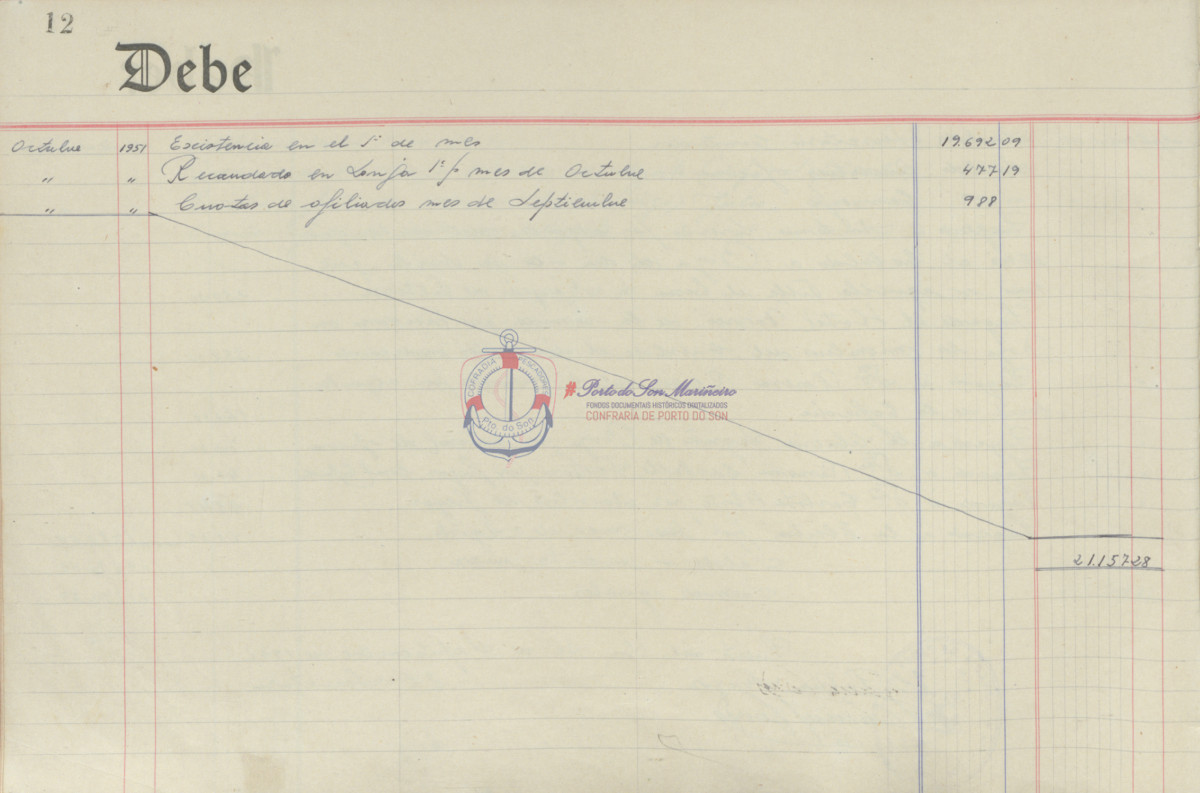 12
Debe
Octubre 1951 Existencia en el 1º de mes 19.692 09
" " Recaudado en Lonja 1% mes de Octubre 477 19
" " Cuotas de afiliados mes de Septiembre 988
COFRADIA PESCADORES
Pto. do Son
# Porto do Son Mariñeiro
FONDOS DOCUMENTAIS HISTÓRICOS DIXITALIZADOS
CONFRARÍA DE PORTO DO SON
21.157 28